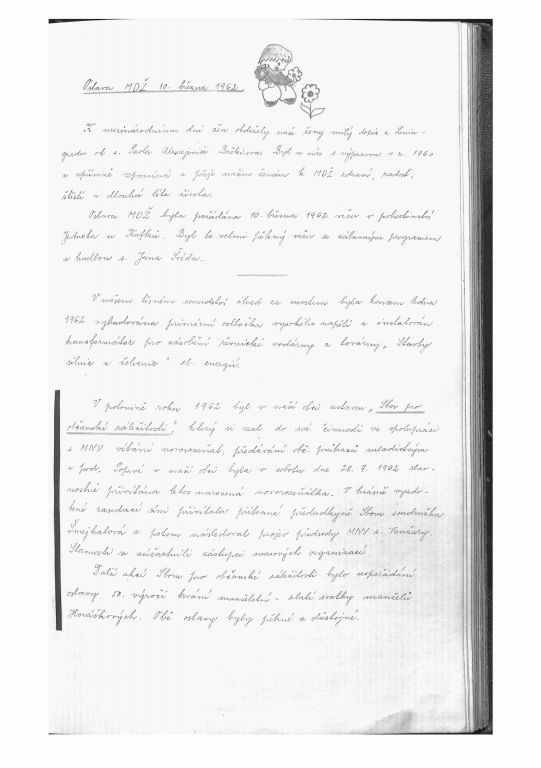 Oslava MDŽ 10. března 1962.
K mezinárodnímu dni žen obdržely naše ženy milý dopis z Lenin-
gradu od s. Pavla Alexejeviče Byl u nás s výpravou v r. 1960
a upřímně vzpomíná a přeje našim ženám k MDŽ zdraví, radost,
štěstí a dlouhá léta života.
Oslava MDŽ byla pořádána 10. března 1962 večer v pohostinství
Jednota u Kafků. Byl to velmi pěkný večer se zábavným programem
a hudbou s. Jana
V našem těsném sousedství ihned za mostem byla koncem ledna
1962 vybudována primérní odbočka vysokého napětí a instalován
transformátor pro zásobení vodárny a továrny „Stavby
silnic a železnic" el. energií.
V polovině roku 1962 byl v naší obci ustaven „Sbor pro
občanské záležitosti", který si vzal do své činnosti ve spolupráci
s MNV vítání novorozeňat, předávání obč. průkazů mladistvým
a pod. Poprvé v naší obci byla v sobotu dne 28. 7. 1962 slav-
nostně přivítána letos narozená novorozeňátka. V krásně vyzdo-
bené zasedací síni přivítala přítomné předsedkyně Sboru soudružka
Šmejkalová a potom následoval projev předsedy MNV s. Vančury.
Slavnosti se zúčastnili zástupci masových organizací.
Další akcí Sboru pro občanské záležitosti bylo uspořádání
oslavy 50. výročí trvání manželství - zlaté svatby manželů
Horáčkových. Obě oslavy byly pěkné a důstojné.